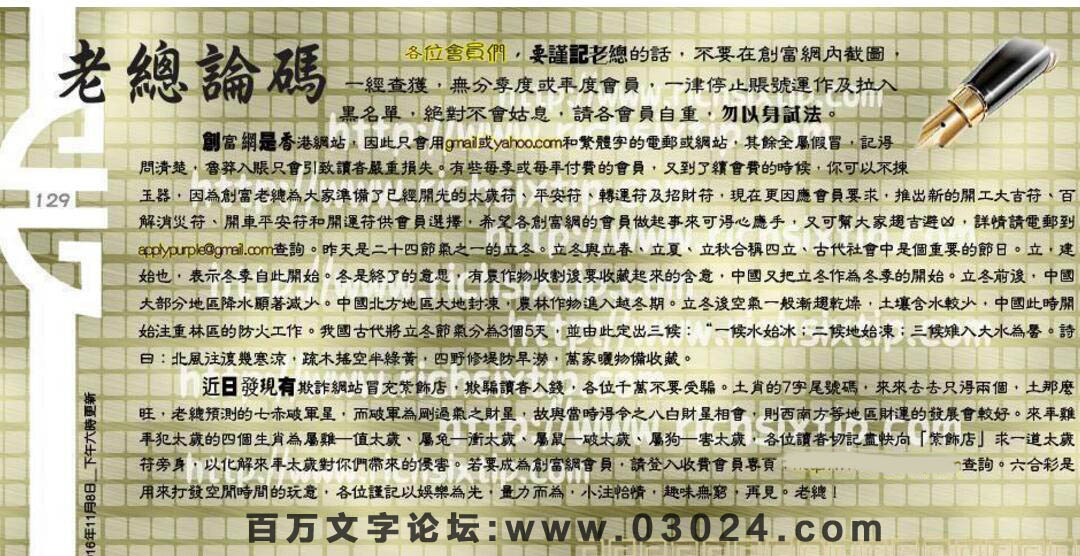 老總論碼
各位會員們，要謹記老總的話，不要在創富網內截圖，
一經查獲，無分季度或年度會員，一津停止賬號運作及拉入
黑名單，絕對不會姑息，請各會員自重，勿以身試法。
創富網是香港網站，因此只會用gmail或yahoo.com和繁體字的電郵或網站，其餘全屬假冒，記得
問清楚，魯莽入賬只會引致讀者嚴重損失。有些每季或每年付費的會員，又到了續會費的時候，你可以不揀
玉器，因為創富老總為大家準備了已經開光的太歲符、平安符、轉運符及招財符，現在更因應會員要求，推出新的開工大吉符、百
解消災符、開車平安符和開運符供會員選擇，希望各創富網的會員做起事來可得心應手，又可幫大家趨吉避凶，詳情請電郵到
applypurple@gmail.com查詢。昨天是二十四節氣之一的立冬。立冬與立春、立夏、立秋合稱四立、古代社會中是個重要的節日。立，建
始也，表示冬季自此開始。冬是終了的意思，有農作物收割後要收藏起來的含意，中國又把立冬作為冬季的開始。立冬前後，中國
大部分地區降水顯著減少。中國北方地區大地封凍，農林作物進入越冬期。立冬後空氣一般漸趨乾燥，土壤含水較少，中國此時開
始注重林區的防火工作。我國古代將立冬節氣分為3個5天，並由此定出三候："一候水始冰；二候地始凍；三候雉入大水為蜃。詩
曰：北風往復幾寒涼，疏木搖空半綠黃，四野修堤防旱澇，萬家曬物備收藏。
近日發現有欺詐網站冒充紫飾店，欺騙讀者入錢，各位千萬不要受騙。土肖的7字尾號碼，來來去去只得兩個，土那麼
旺，老總預測的七赤破軍星，而破軍為剛過氣之財星，故與當時得令之八白財星相會，則西南方等地區財運的發展會較好。來年雞
年犯太歲的四個生肖為屬雞—值太歲、屬兔—衝太歲、屬鼠—破太歲、屬狗—害太歲，各位讀者切記盡快向「紫飾店」求一道太歲
符旁身，以化解來年太歲對你們帶來的侵害。若要成為創富網會員，請登入收費會員專頁：查詢。六合彩是
用來打發空閒時間的玩意，各位謹記以娛樂為先，量力而為，小注怡情，趣味無窮，再見。老總！
129
16年11月8日 下午六時更新
http://www.richsixtip.com
百万文字论坛:www.03024.com